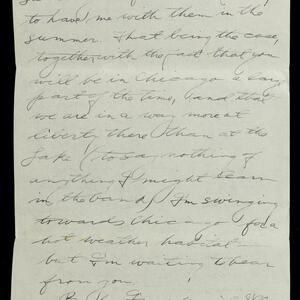 to have me with them in the
summer. That being the case,
together with the fact that you
will be in Chicago a large
part of the time, and that
we are in a way more at
liberty there than at the
Lake (to say nothing of
anything I might learn
in the band) I'm swinging
towards Chicago for a
hot weather habitat—
but I'm waiting to hear
from you.